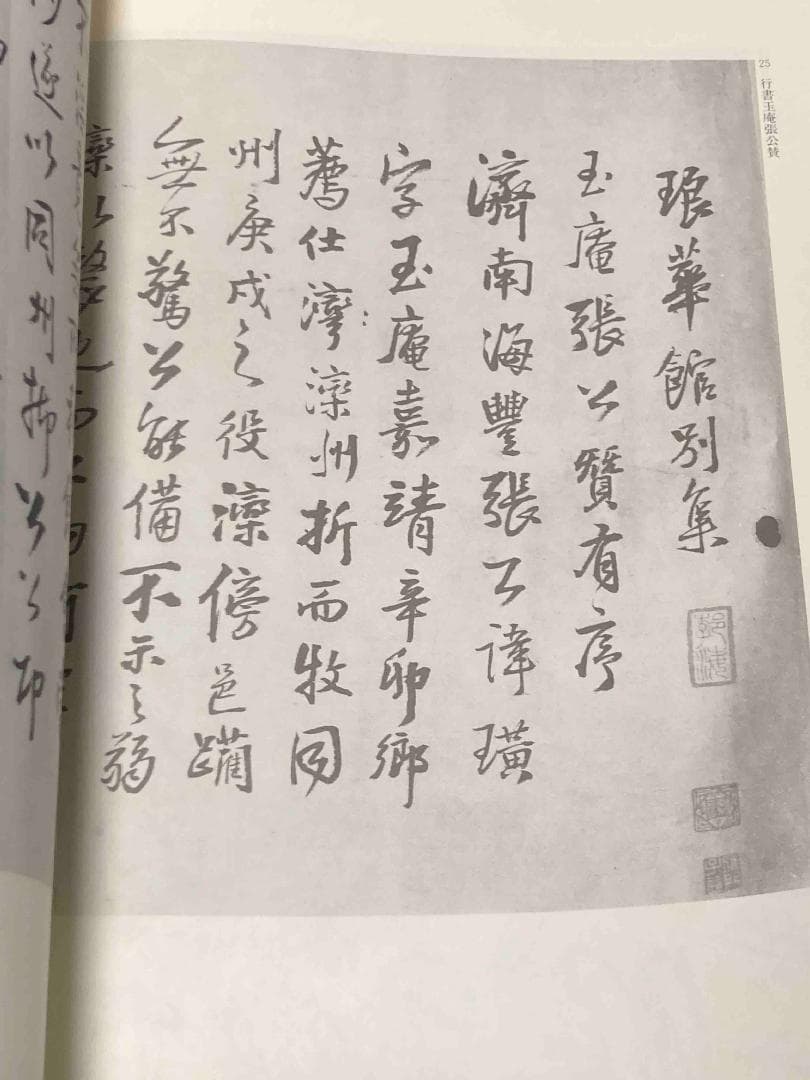 25 行書玉庵張公贊
琅華館別集
玉庵張公贊有序
濟南海豐張公諱璜
字玉庵嘉靖辛卯鄉
薦仕灤州折而牧同
州庚戌之役灤傍邑躪
無不驚公能備不示之弱
遂以同州擢公公